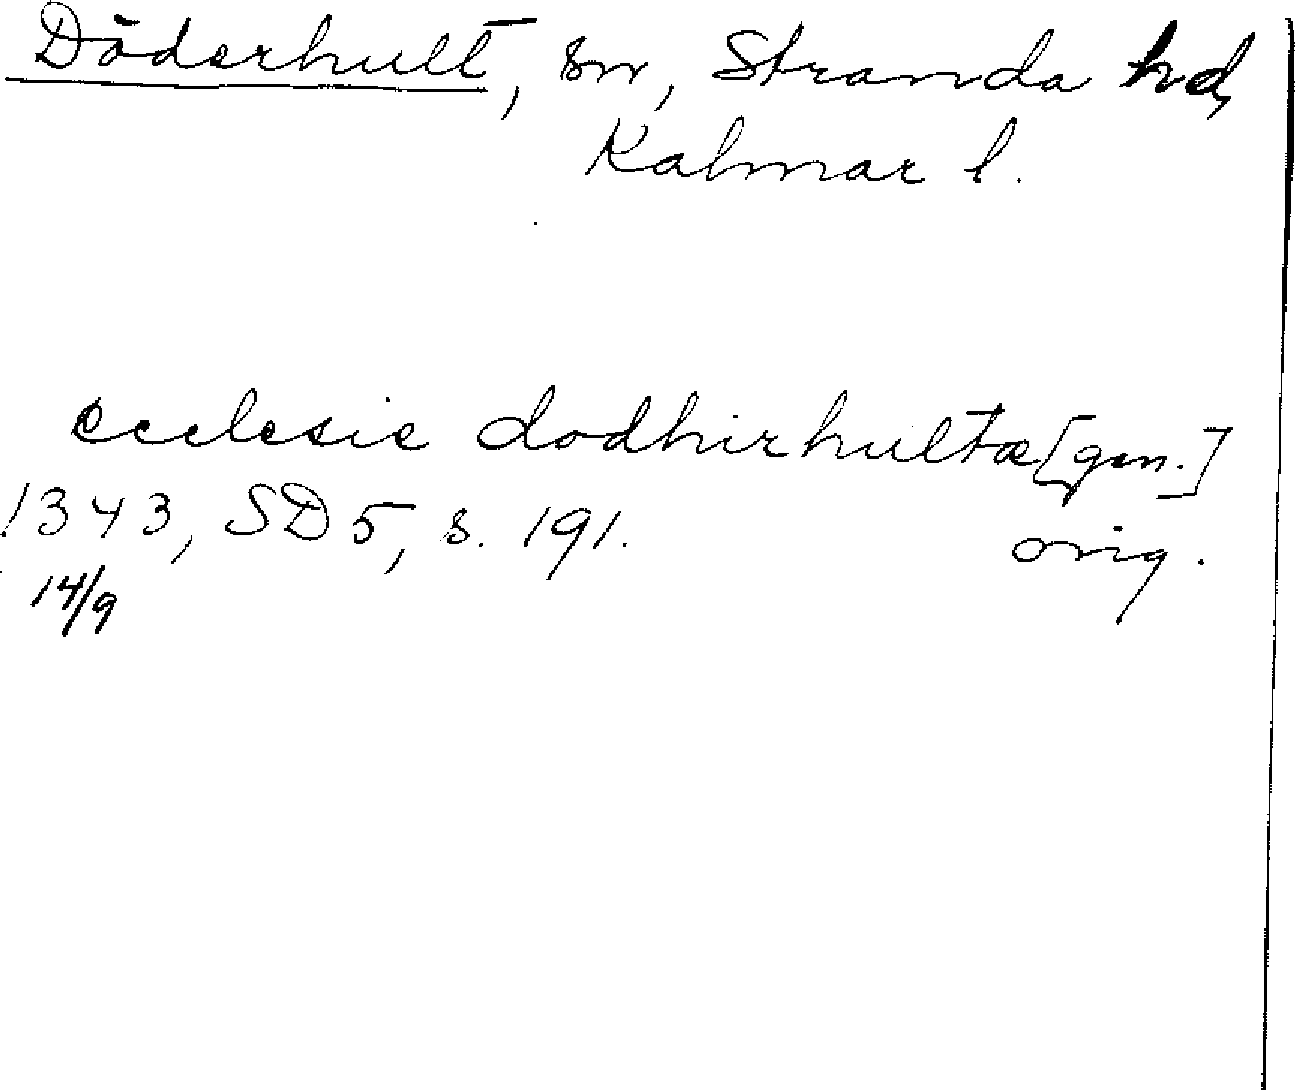 Döderhult, sn, Stranda hd,
Kalmar l.
ecclesie dodhirhultæ [gen.]
1343, SD 5, s. 191. orig.
14/9